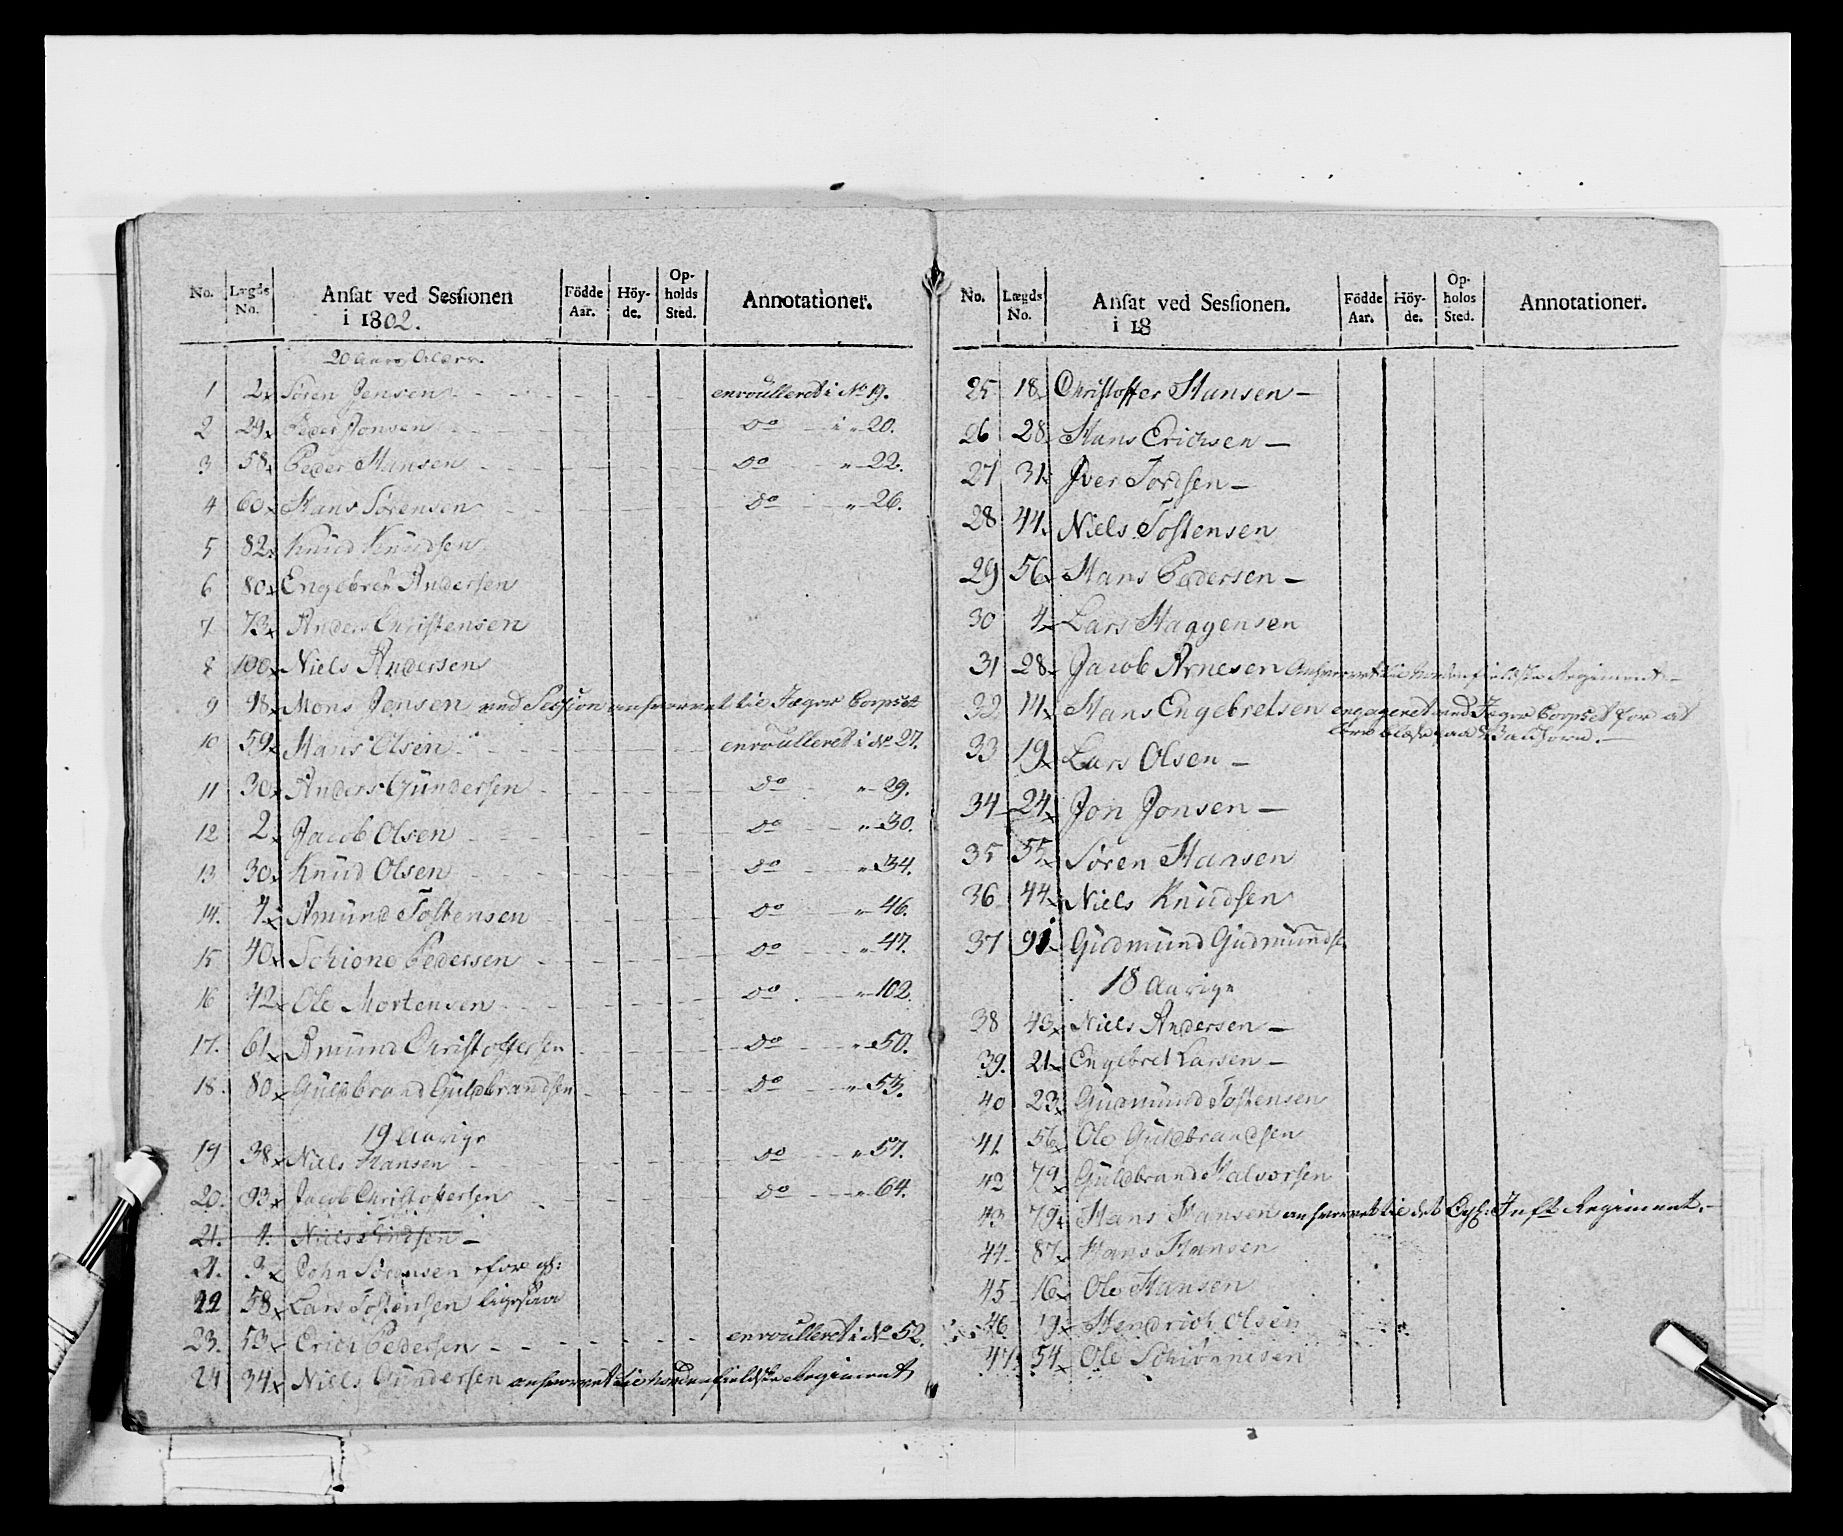 No. Lægds No. Ansat ved Sessionen i 1802. Födde Aar. Höyde. Opholds Sted. Annotationer.
20 Aars
1 2 Sören Jensen enroulleret i No 19.
2 29 Peder Jonsen do i " 20.
3 58 Peder Hansen do " 22.
4 60 Hans Sörensen do " 26.
5 82 Knud Knudsen
6 80 Engebret Andersen
7 73 Anders Christensen
8 100 Niels Andersen
9 98 Mons Jensen ved Session anhvervet til Jæger Corpset
10 59 Hans Olsen enroulleret i No 27.
11 30 Anders Gundersen do " 29.
12 2 Jacob Olsen do " 30.
13 30 Knud Olsen do " 34.
14. 4 Amund Tostensen do " 46.
15 40 Schione Pedersen do " 47.
16 42 Ole Mortensen do " 102.
17. 61 Amund Christoffersen do " 50.
18. 80 Guldbrand Guldbrandsen do " 53.
19 Aarige
19 38 Niels Hansen do " 57.
20. 93 Jacob Christoffersen do " 64.
21. 4. Niels
21. 3 John Sörensen
22 58 Lars Tostensen ligesaa
23. 53 Erich Pedersen enroulleret i No 52
24 34 Niels Gundersen anhvervet til Nordenfieldske Regiment
No. Lægds No. Ansat ved Sessionen. i 18 Födde Aar. Höyde. Opholds Sted. Annotationer.
25 18 Christoffer Hansen
26 28 Hans Erichsen
27 31 Iver Tordsen
28 44. Niels Tostensen
29 56 Hans Pedersen
30 4 Lars Haagensen
31 28 Jacob Arnesen anhvervet til Nordenfieldske Regiment
32 14 Hans Engebretsen engageret ved Jæger Corpset for at
lære blæse paa Walthorn.
33 19 Lars Olsen
34 24 Jon Jonsen
35 55 Sören Hansen
36 44 Niels Knudsen
37 91 Gudmund Gudmunds
18 Aarige
38 43 Niels Andersen
39. 21 Engebret Larsen
40 23 Gudmund Tostensen
41. 56 Ole Guldbrandsen
42 79 Guldbrand Halvorsen
43 79 Hans Hansen anhvervet til det Inft Regiment.
44 87 Hans Hansen
45 16 Ole Hansen
46 19 Hendrich Olsen
47 54 Ole Schiönnesen